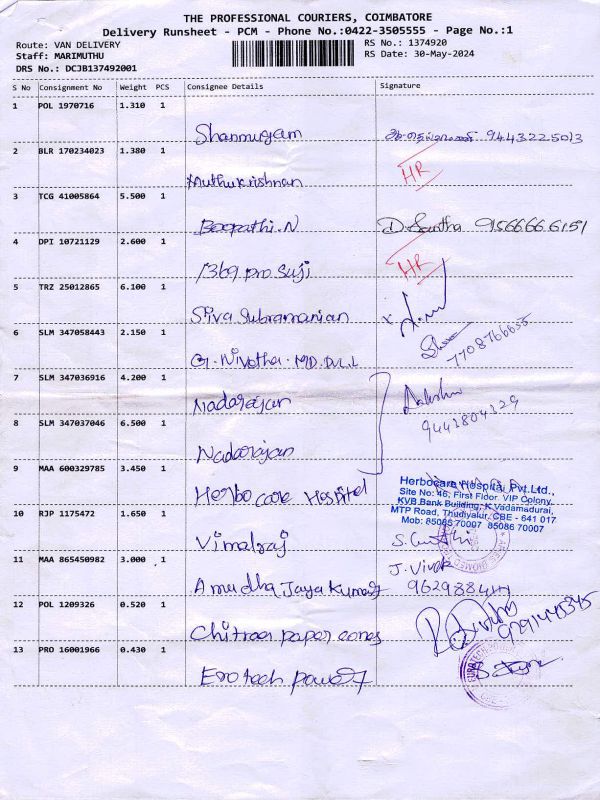 THE PROFESSIONAL COURIERS, COIMBATORE
Delivery Runsheet - PCM - Phone No.:0422-3505555 - Page No.:1
Route: VAN DELIVERY RS No.: 1374920
Staff: MARIMUTHU RS Date: 30-May-2024
DRS No.: DCJB137492001
S No Consignment No Weight PCS Consignee Details Signature
1 POL 1970716 1.310 1
Shanmugam 9443225013
2 BLR 170234023 1.380 1
Muthukrishnan HR
3 TCG 41005864 5.500 1
Boopathi.N D. Santha 9566666151
4 DPI 10721129 2.600 1
1369 pro Suji HR
5 TRZ 25012865 6.100 1
Siva Subramanian
6 SLM 347058443 2.150 1
G. Nivetha. MD. D.L.L 7708766655
7 SLM 347036916 4.200 1
Nadarajan
8 SLM 347037046 6.500 1
Nadarajan 9441804129
9 MAA 600329785 3.450 1
Herbo care Hospital
Herbocare Hospital Pvt.Ltd.,
Site No: 46, First Floor. VIP Colony,
KVB.Bank Building, K.Vadamadurai,
MTP Road, Thudiyalur, CBE - 641 017
Mob: 85086 70007 85086 70007
10 RJP 1175472 1.650 1
Vimalraj
11 MAA 865450982 3.000 1
J. Vivek
Amudha Jaya Kumar
12 POL 1209326 0.520 1
Chitraa paper cones
13 PRO 16001966 0.430 1
Erotech power